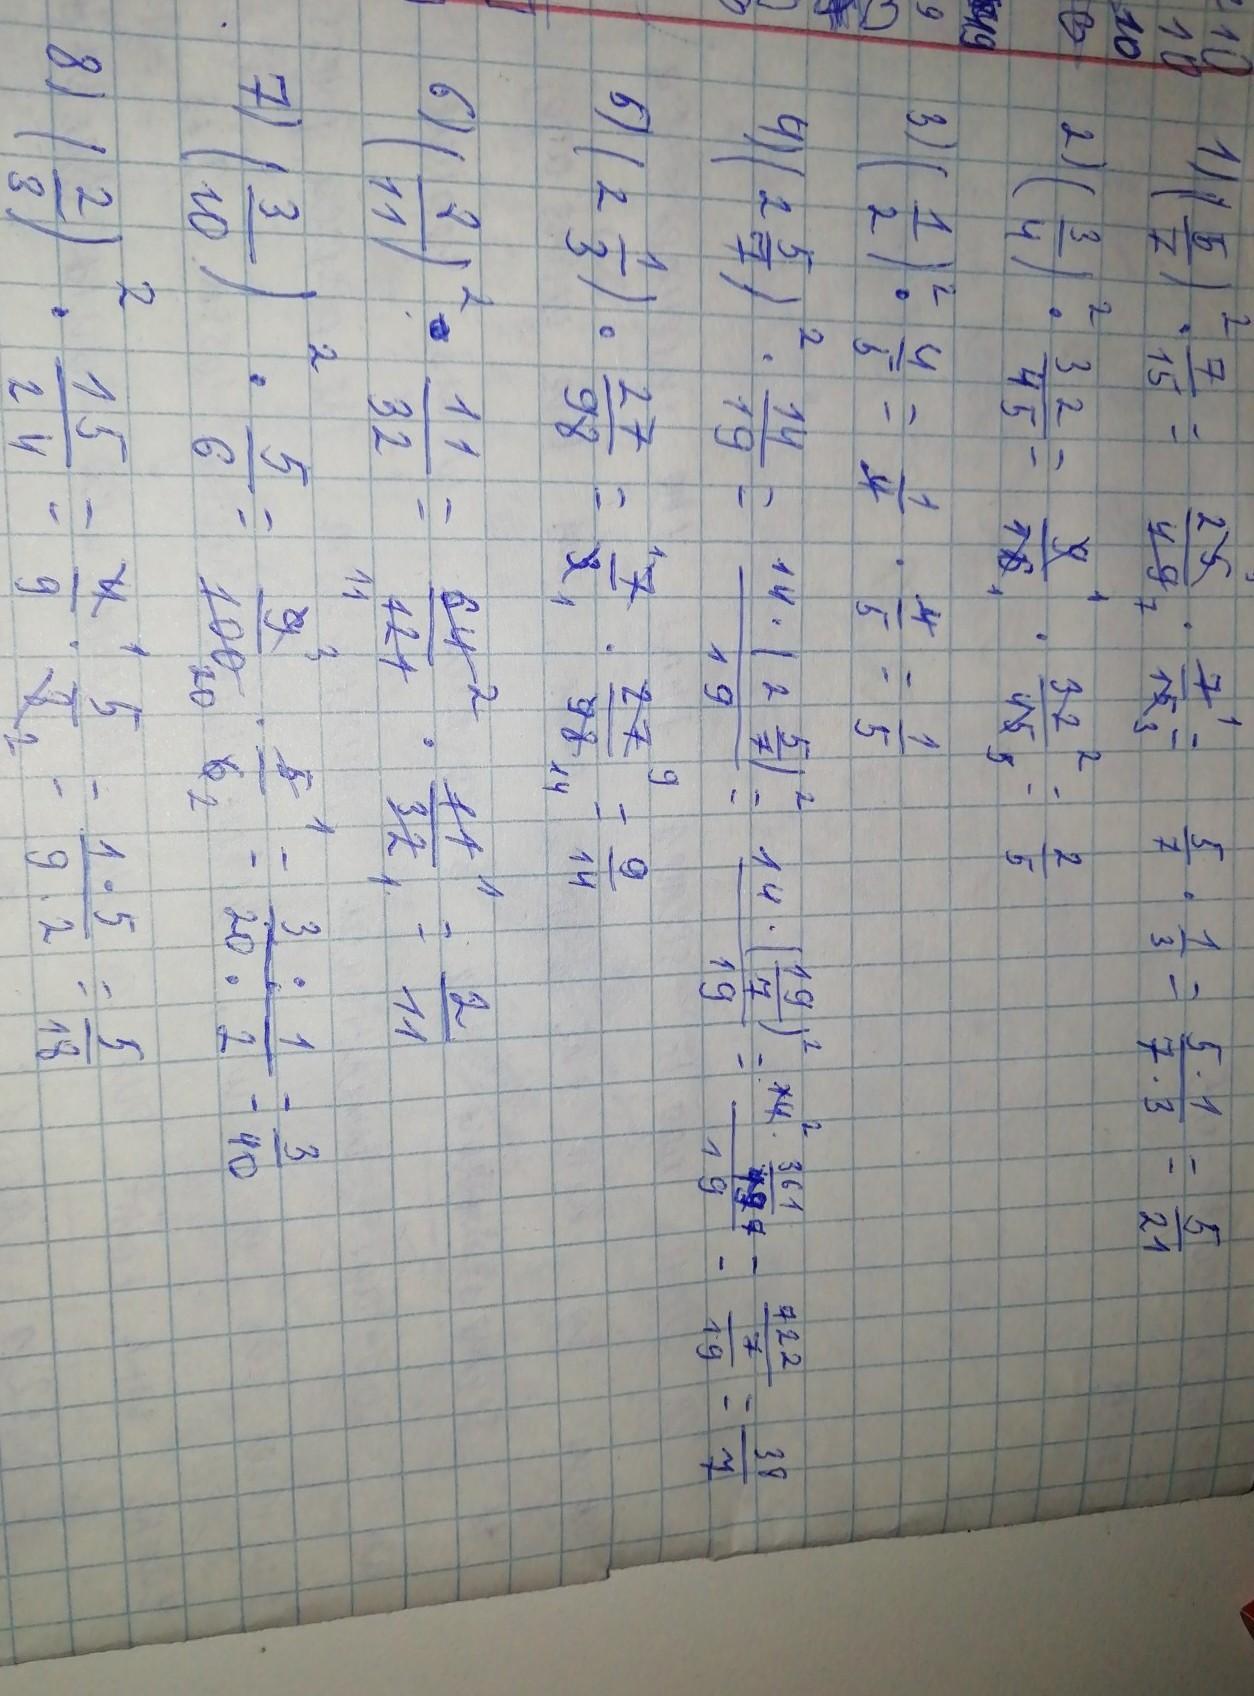 1) (5/7)² · 7/15 = 25/49 7 · 7 1/15 3 = 5/7 · 1/3 = 5·1/7·3 = 5/21
2) (3/4)² · 32/45 = 9 1/16 1 · 32 2/45 5 = 2/5
3) (1/2)² · 4/5 = 1/4 · 4/5 = 1/5
4) (2 5/7)² · 14/19 = 14·(2 5/7)²/19 = 14·(19/7)²/19 = 14 2 · 361/49 7/19 = 722/7/19 = 38/7
5) (2 1/3) · 27/98 = 1 7/3 1 · 27 9/98 14 = 9/14
6) (8/11)² · 11/32 = 64 2/121 11 · 11 1/32 1 = 2/11
7) (3/10)² · 5/6 = 9 3/100 20 · 5 1/6 2 = 3·1/20·2 = 3/40
8) (2/3)² · 15/24 = 4 1/9 · 5/8 2 = 1·5/9·2 = 5/18